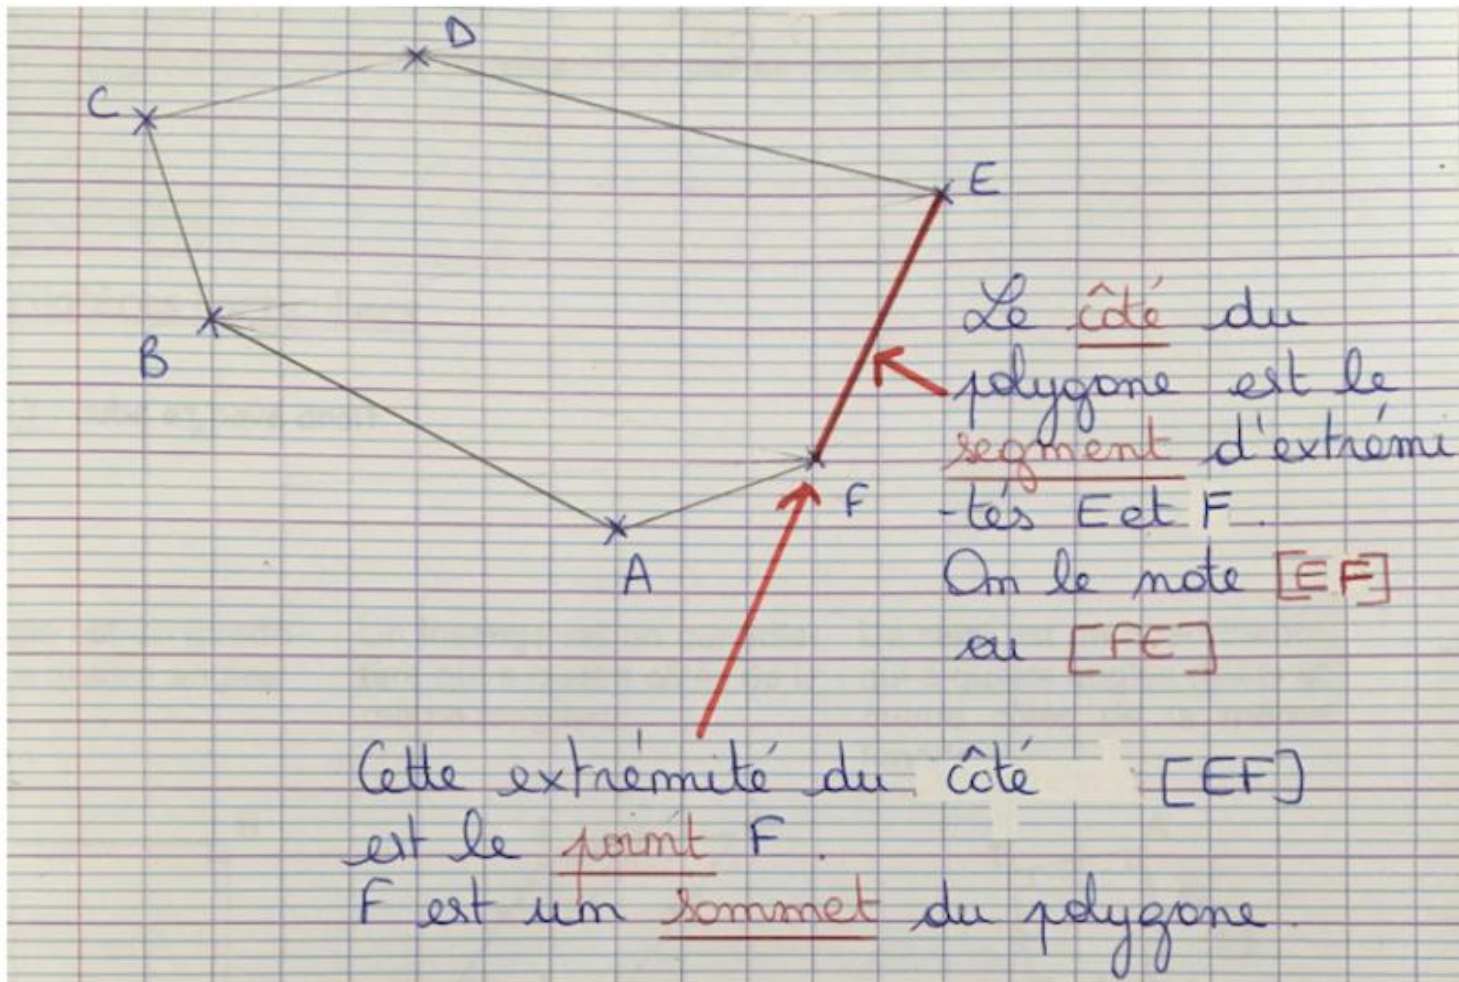 D
C
E
B
Le côté du
polygone est le
segment d'extrémi
-tés E et F.
F
A
On le note [EF]
ou [FE]
Cette extrémité du côté [EF]
est le point F.
F est un sommet du polygone.